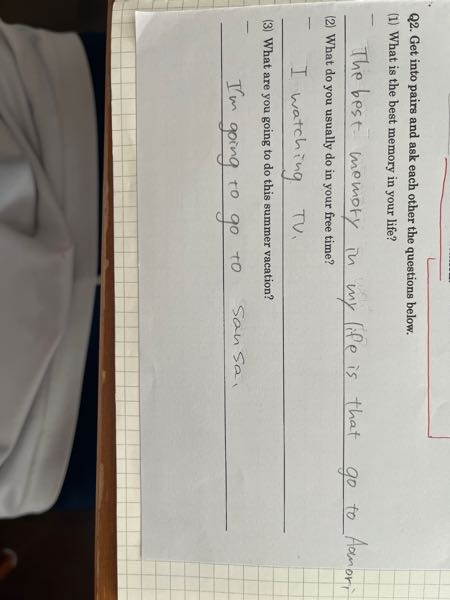 Q2. Get into pairs and ask each other the questions below.
(1) What is the best memory in your life?
— The best memory in my life is that go to Aomori
(2) What do you usually do in your free time?
— I watching TV.
(3) What are you going to do this summer vacation?
— I'm going to go to sansa.